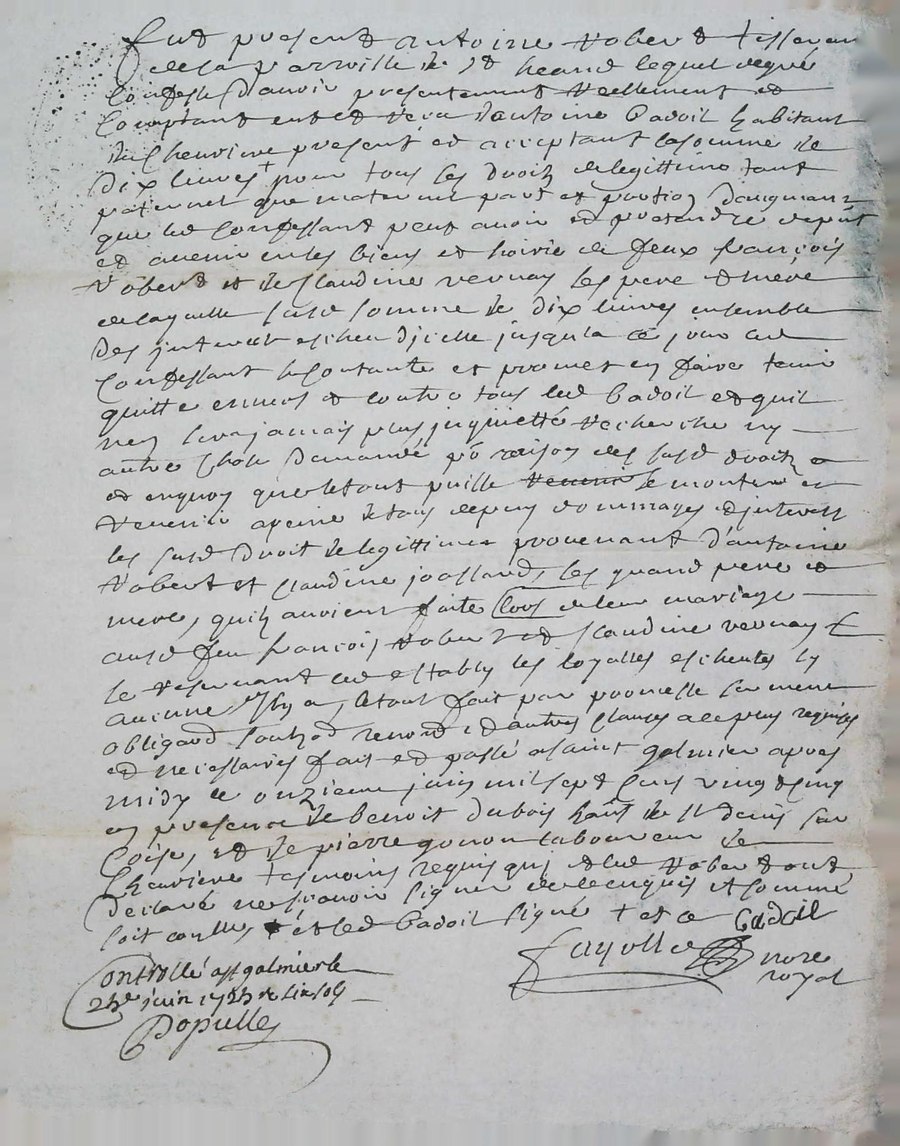 fut present antoine Robert tisseran
de la parroisse de St heand lequel de gré
Confesse d'avoir presentement reellement et
Comptant eut et receu d'antoine Badoil habitant
de Chevriere present et acceptant la somme de
Dix livres pour tous les droits de legittime tant
paternel que maternel part et portion d'augment
que led Confessant peut avoir et pretendre de put
et avenir en les biens et hoirie de feux françois
Robert et de Claudine vernay les pere et mere
de laquelle susd somme de dix livres ensemble
Des interest escheu dicelle jusqua ce jour led
Confessant se Contante et promet en faire tenir
quitte envers et contre tous led badoil et quil
nen sera jamais plus inquietté recherché ny
autre Chose Demandé po raison des susd droits
et enquoy que le tout puisse se monter et
revenir a peine de tous depens dommages et interests
les susd Droit de legittime provenant d'antoine
Robert et Claudine josserand, les grand pere et
mere, quils avoient faite lors de leur mariage
aud feu françois Robert et Claudine vernay
se reservant led establi les loyalles escheutes sy
aucune Il y a, le tout fait par promesse serment
obligaõn soubmõn renonõn et autres Clauses a ce plus requises
et necessaires fait et passé a saint galmier apres
midy le onzieme juin mil sept Cens vingt Cinq
en presence de benoit dubois hoste de St denis sur
Coise, et de pierre gonon laboureur de
Chevriere tesmoins requis qui et led Robert ont
declaré ne scavoir signer de ce enquis et sommé
soit contlles et led badoil signé + et ce Badoil
fayolle nore
royal
Controllé a st galmier le
24e juin 1725 R six sols
Dopulle